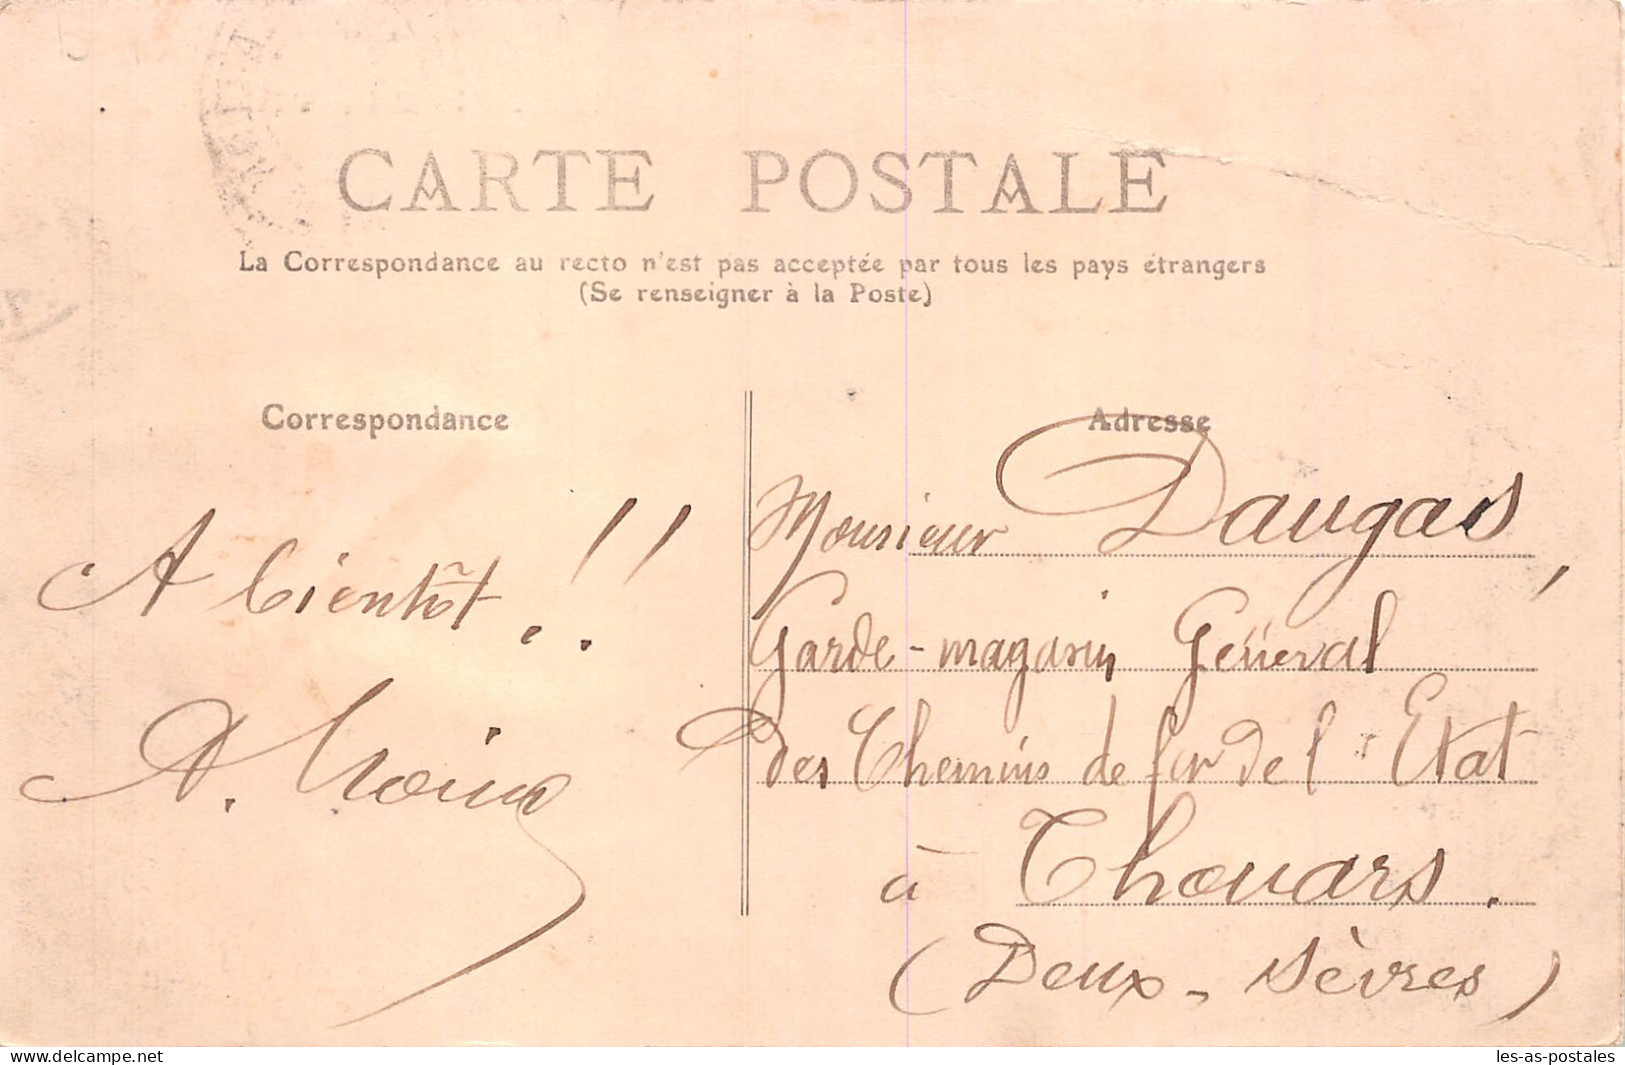 CARTE POSTALE
La Correspondance au recto n'est pas acceptée par tous les pays étrangers
(Se renseigner à la Poste)
Correspondance
A bientôt !!
A.
Adresse
Monsieur Daugas,
Garde-magasin Général
des Chemins de fer de l'Etat
à Thouars.
(Deux-Sèvres)
www.delcampe.net
les-as-postales